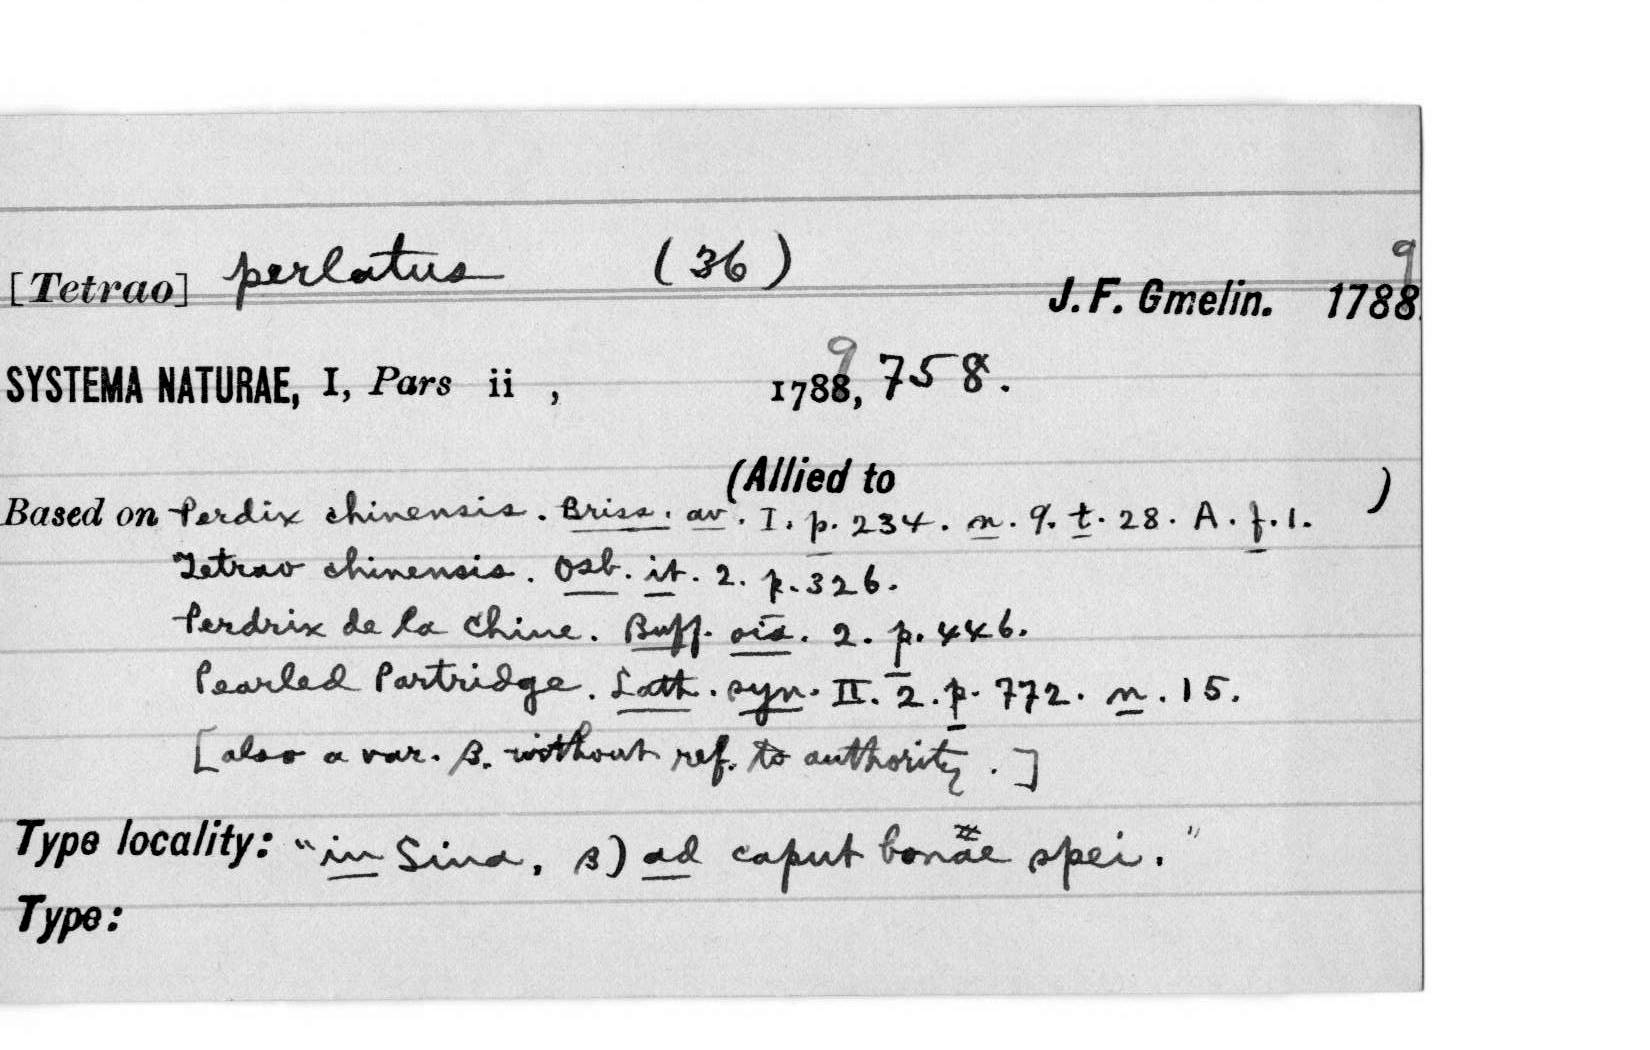 [Tetrao] perlatus (36)
9
J. F. Gmelin. 1788.
9
SYSTEMA NATURAE, I, Pars ii , 1788, 758.
(Allied to )
Based on Perdix chinensis. Briss. av. I. p. 234. n. 9. t. 28. A. f. 1.
Tetrao chinensis. Osb. it. 2. p. 326.
Perdrix de la Chine. Buff. ois. 2. p. 446.
Pearled Partridge. Lath. syn. II. 2. p. 772. n. 15.
[also a var. β. without ref. to authority.]
Type locality: "in Sina, β) ad caput bonae spei."
Type: